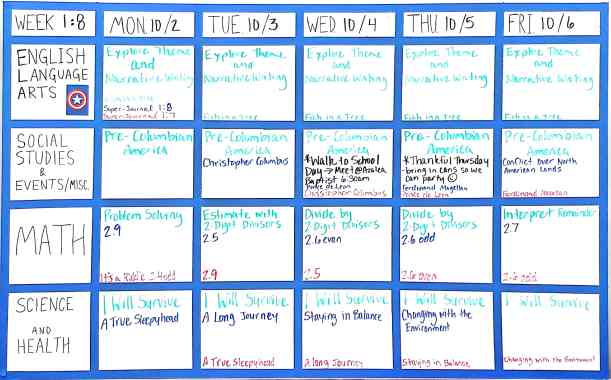 WEEK 1:8
MON 10/2
TUE 10/3
WED 10/4
THU 10/5
FRI 10/6
ENGLISH
LANGUAGE
ARTS
Explore Theme
and
Narrative Writing
Super-Journal 1:8
Super-Journal 1:7
Explore Theme
and
Narrative Writing
Fish in a Tree
Explore Theme
and
Narrative Writing
Fish in a Tree
Explore Theme
and
Narrative Writing
Fish in a Tree
Explore Theme
and
Narrative Writing
Fish in a Tree
SOCIAL
STUDIES
&
EVENTS/MISC.
Pre-Columbian
America
Pre-Columbian
America
Christopher Columbus
Pre-Columbian
America
*Walk to School
Day → Meet @ Azalea
Baptist 6:30am
Ponce de Leon
Christopher Columbus
Pre-Columbian
America
*Thankful Thursday
-bring in cans so we
can party
Ferdinand Magellan
Ponce de Leon
Pre-Columbian
America
Conflict over North
American Lands
Ferdinand Magellan
MATH
Problem Solving
2.9
It's a Puzzle 2.4 odd
Estimate with
2-Digit Divisors
2.5
2.9
Divide by
2-Digit Divisors
2.6 even
2.5
Divide by
2-Digit Divisors
2.6 odd
2.6 even
Interpret Remainder
2.7
2.6 odd
SCIENCE
AND
HEALTH
I Will Survive
A True Sleepyhead
I Will Survive
A Long Journey
A True Sleepyhead
I Will Survive
Staying in Balance
A Long Journey
I Will Survive
Changing with the
Environment
Staying in Balance
I Will Survive
Changing with the Environment